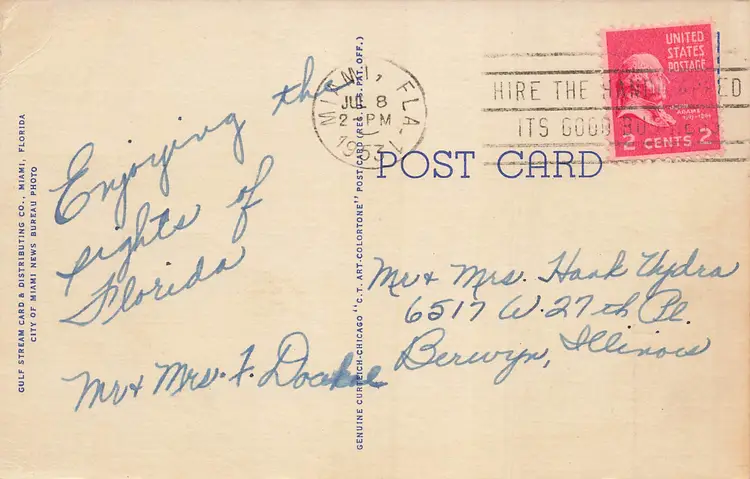 Enjoying the
sights of
Florida
Mr & Mrs. F.
GULF STREAM CARD & DISTRIBUTING CO., MIAMI, FLORIDA
CITY OF MIAMI NEWS BUREAU PHOTO
GENUINE CURTEICH-CHICAGO "C.T. ART-COLORTONE" POST CARD (REG. U.S. PAT. OFF.)
MIAMI, FLA.
8
2 PM
1953
HIRE THE HANDICAPPED
ITS GOOD BUSINESS
UNITED
STATES
POSTAGE
ADAMS
2 CENTS 2
POST CARD
Mr & Mrs. Hank Vydra
6517 W. 27th Pl.
Berwyn, Illinois